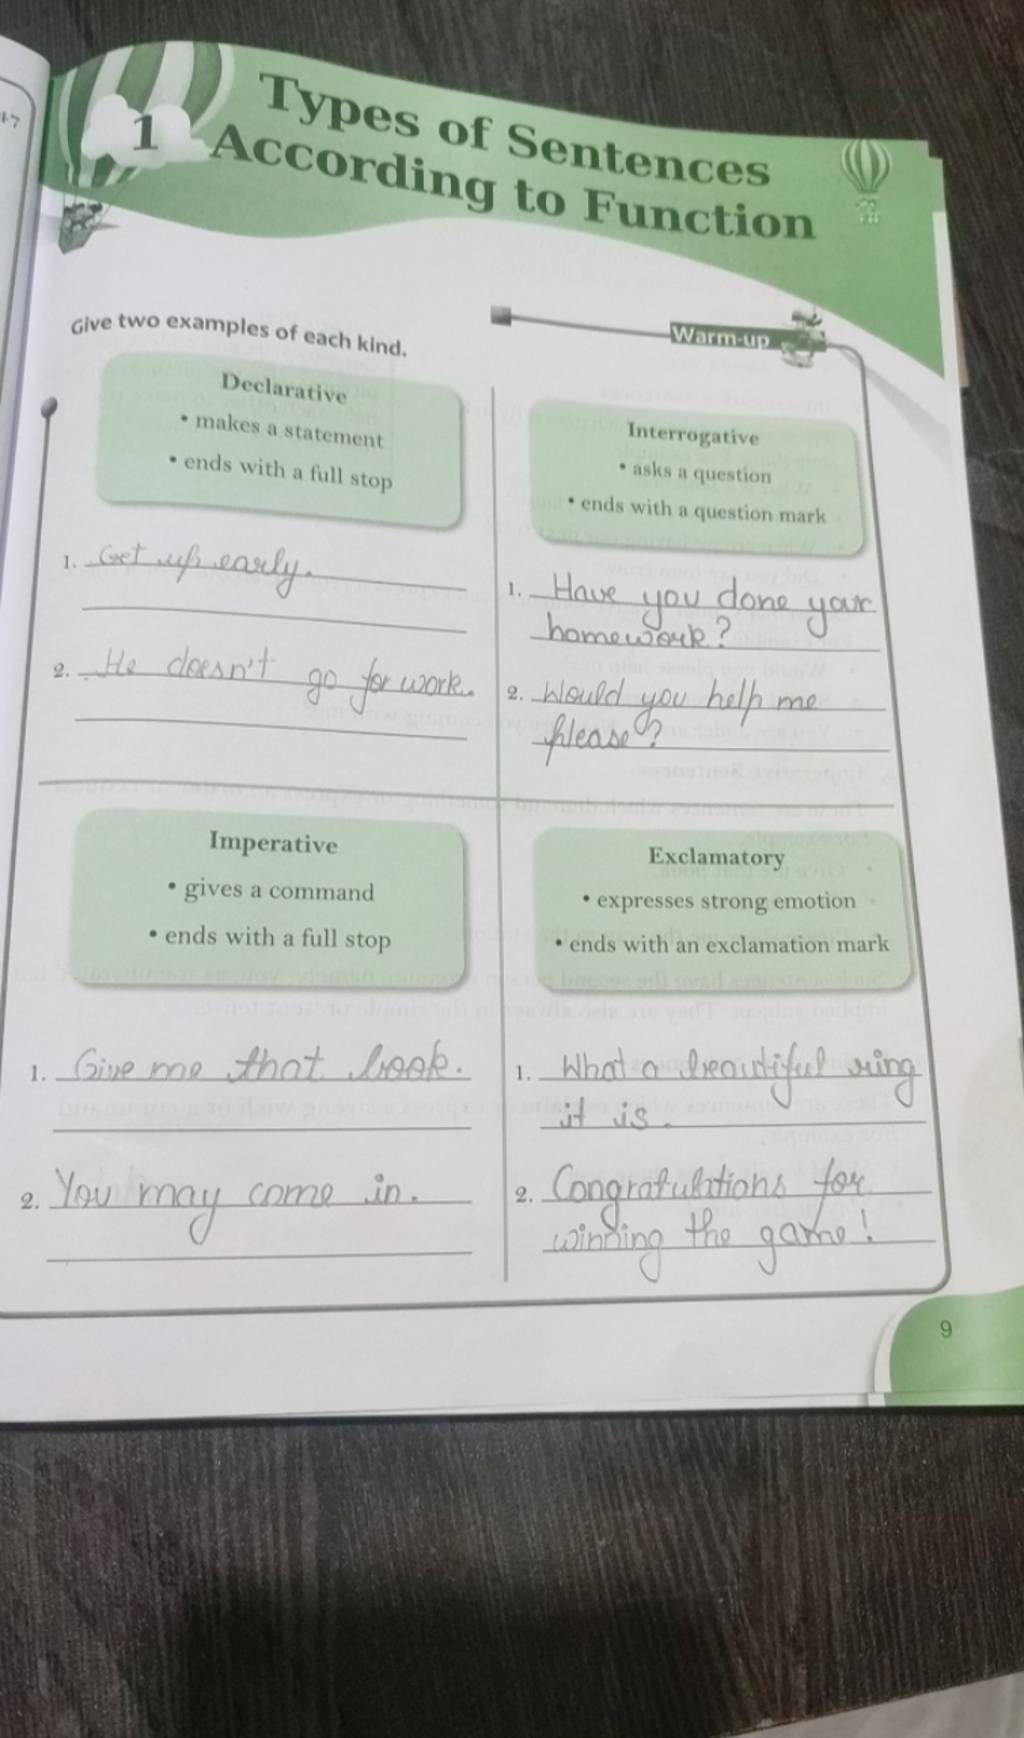 1
Types of Sentences
According to Function
Give two examples of each kind.
Warm-up
Declarative
• makes a statement
• ends with a full stop
1. Get up early.
2. He doesn't go for work.
Interrogative
• asks a question
• ends with a question mark
1. Have you done your
homework?
2. Would you help me
please?
Imperative
• gives a command
• ends with a full stop
1. Give me that book.
2. You may come in.
Exclamatory
• expresses strong emotion
• ends with an exclamation mark
1. What a beautiful ring
it is.
2. Congratulations for
winning the game!
9